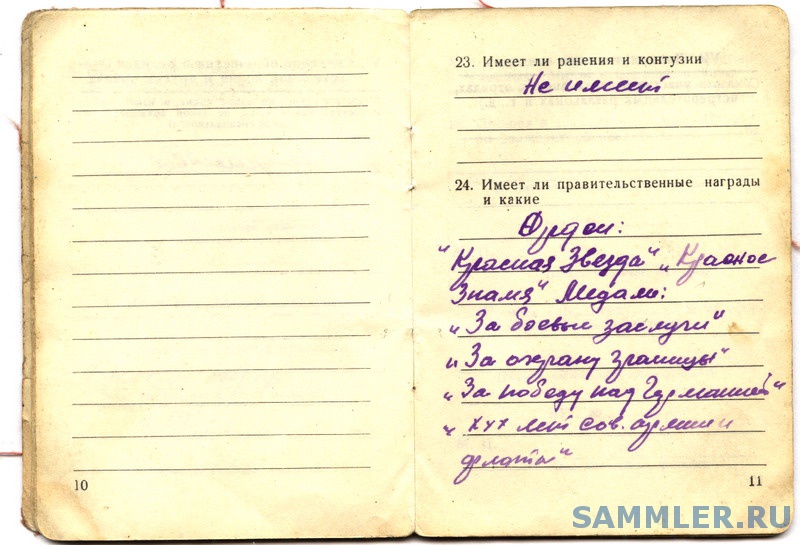 10
23. Имеет ли ранения и контузии
Не имеет
24. Имеет ли правительственные награды
и какие
Орден:
"Красная Звезда" „Красное
Знамя" Медали:
„За боевые заслуги"
„За охрану границы"
„За победу над Германией"
„ХХХ лет сов. армии и
флота"
11
SAMMLER.RU